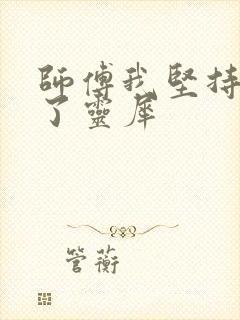 師傅我堅持
了靈犀
管蘅